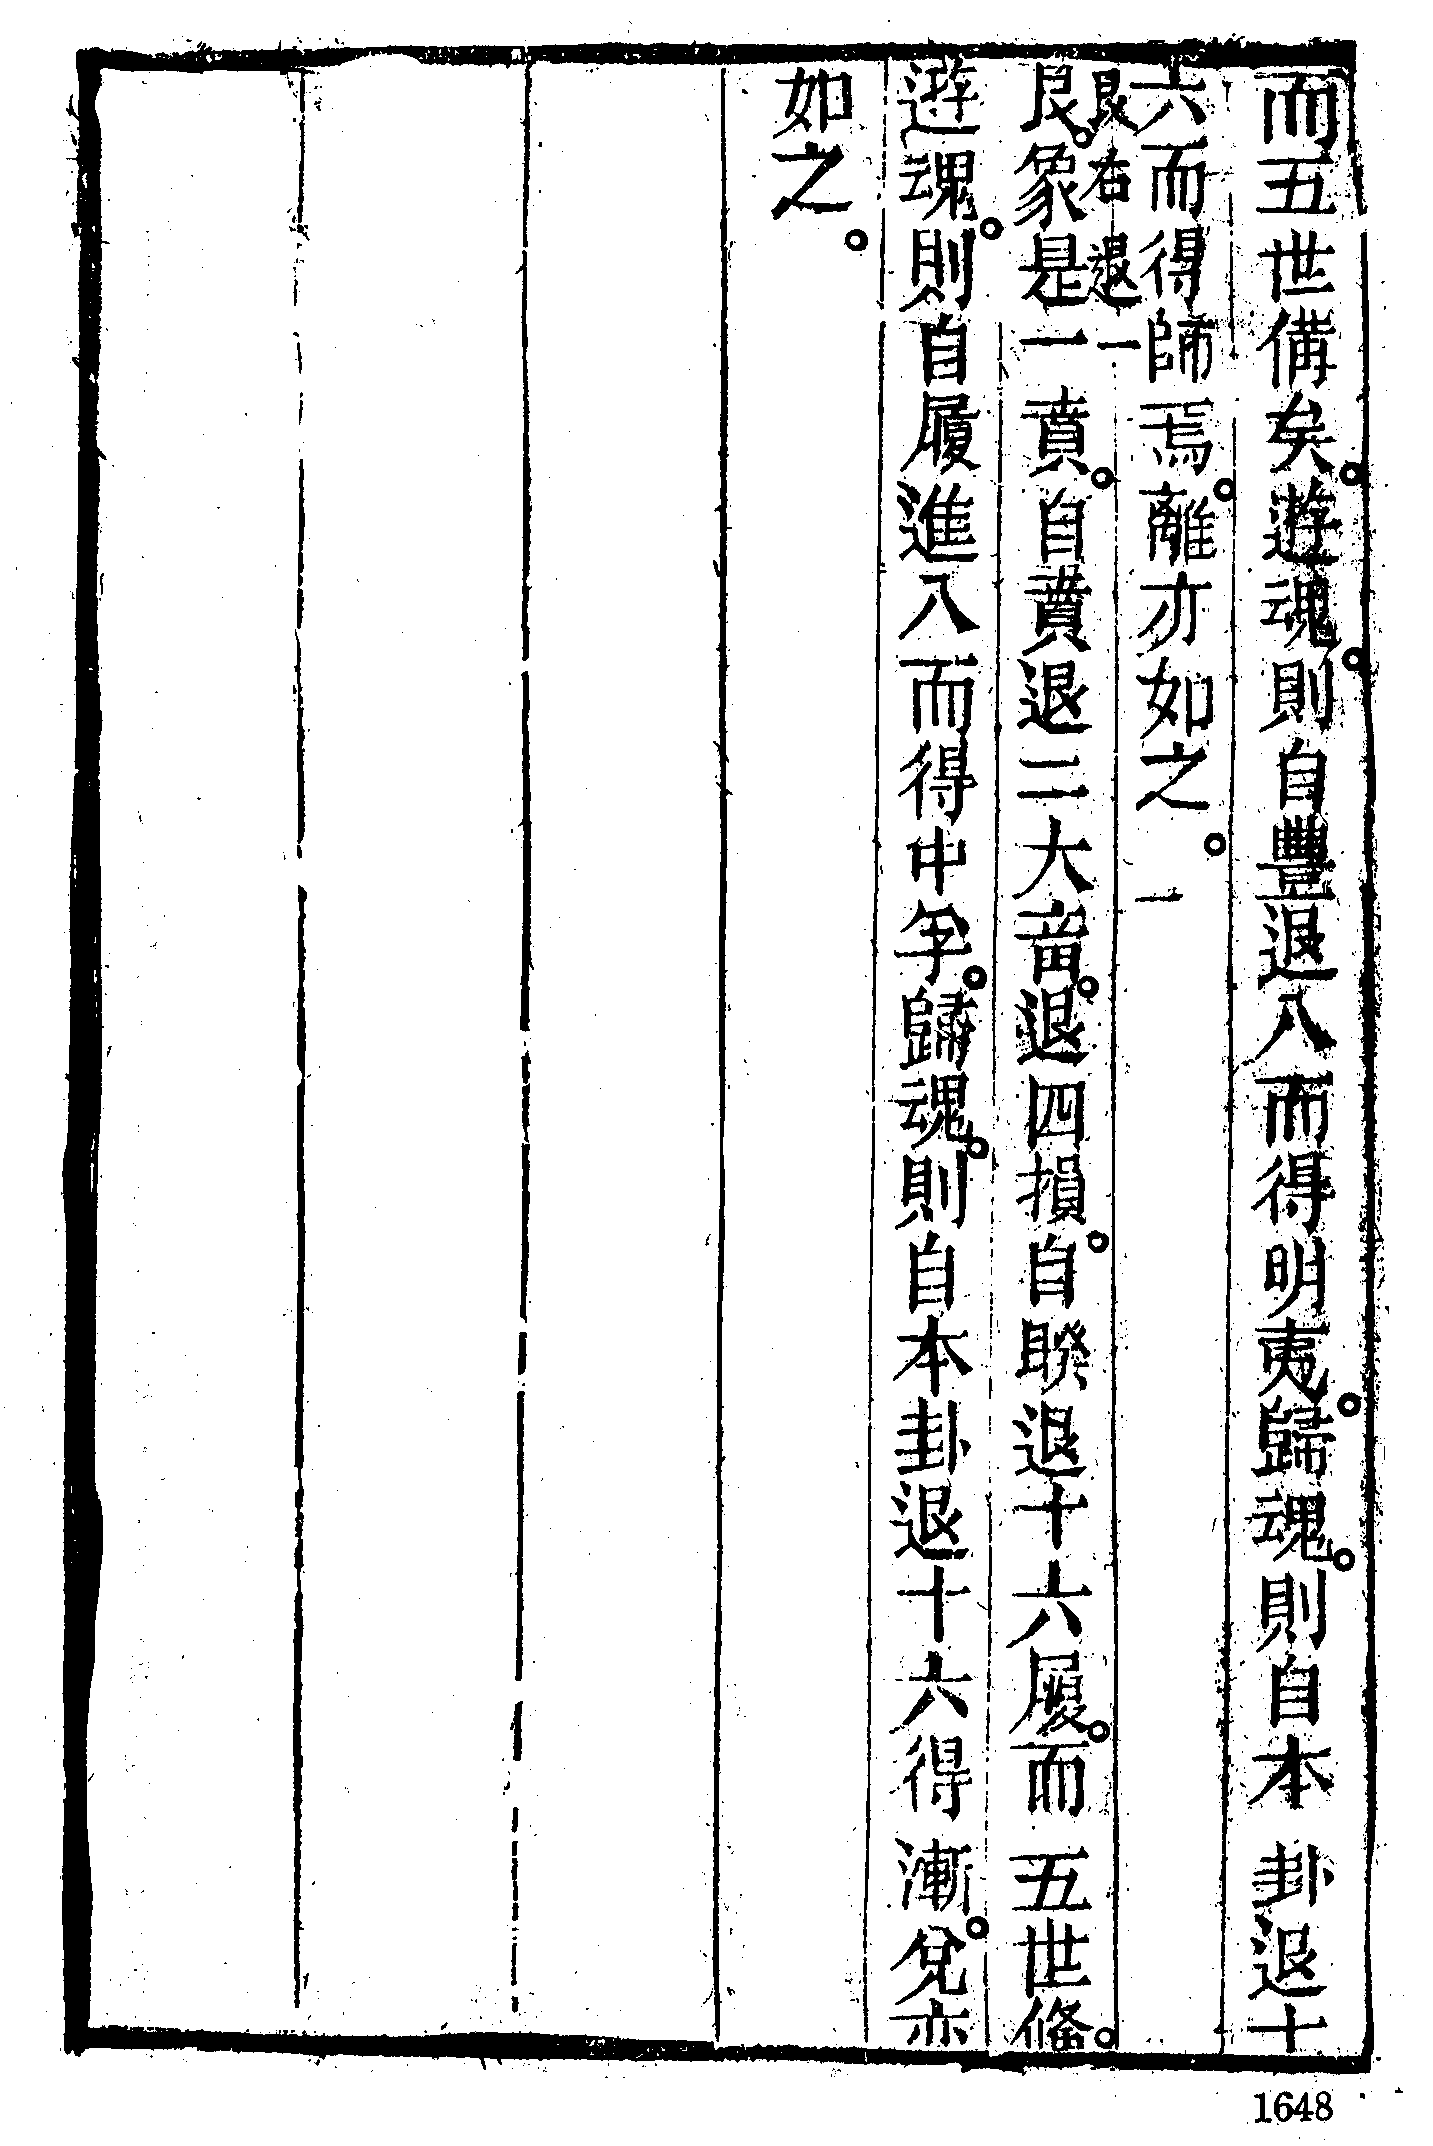 而五世備矣。遊魂。則自豐退八而得明夷。歸魂。則自本卦退十
六而得師焉。離亦如之。一
艮右退一
艮。象是一賁。自賁退二大畜。退四損。自睽退十六履。而五世俻。
遊魂。則自履進八而得中孚。歸魂。則自本卦退十六得漸。兌亦
如之。
1648